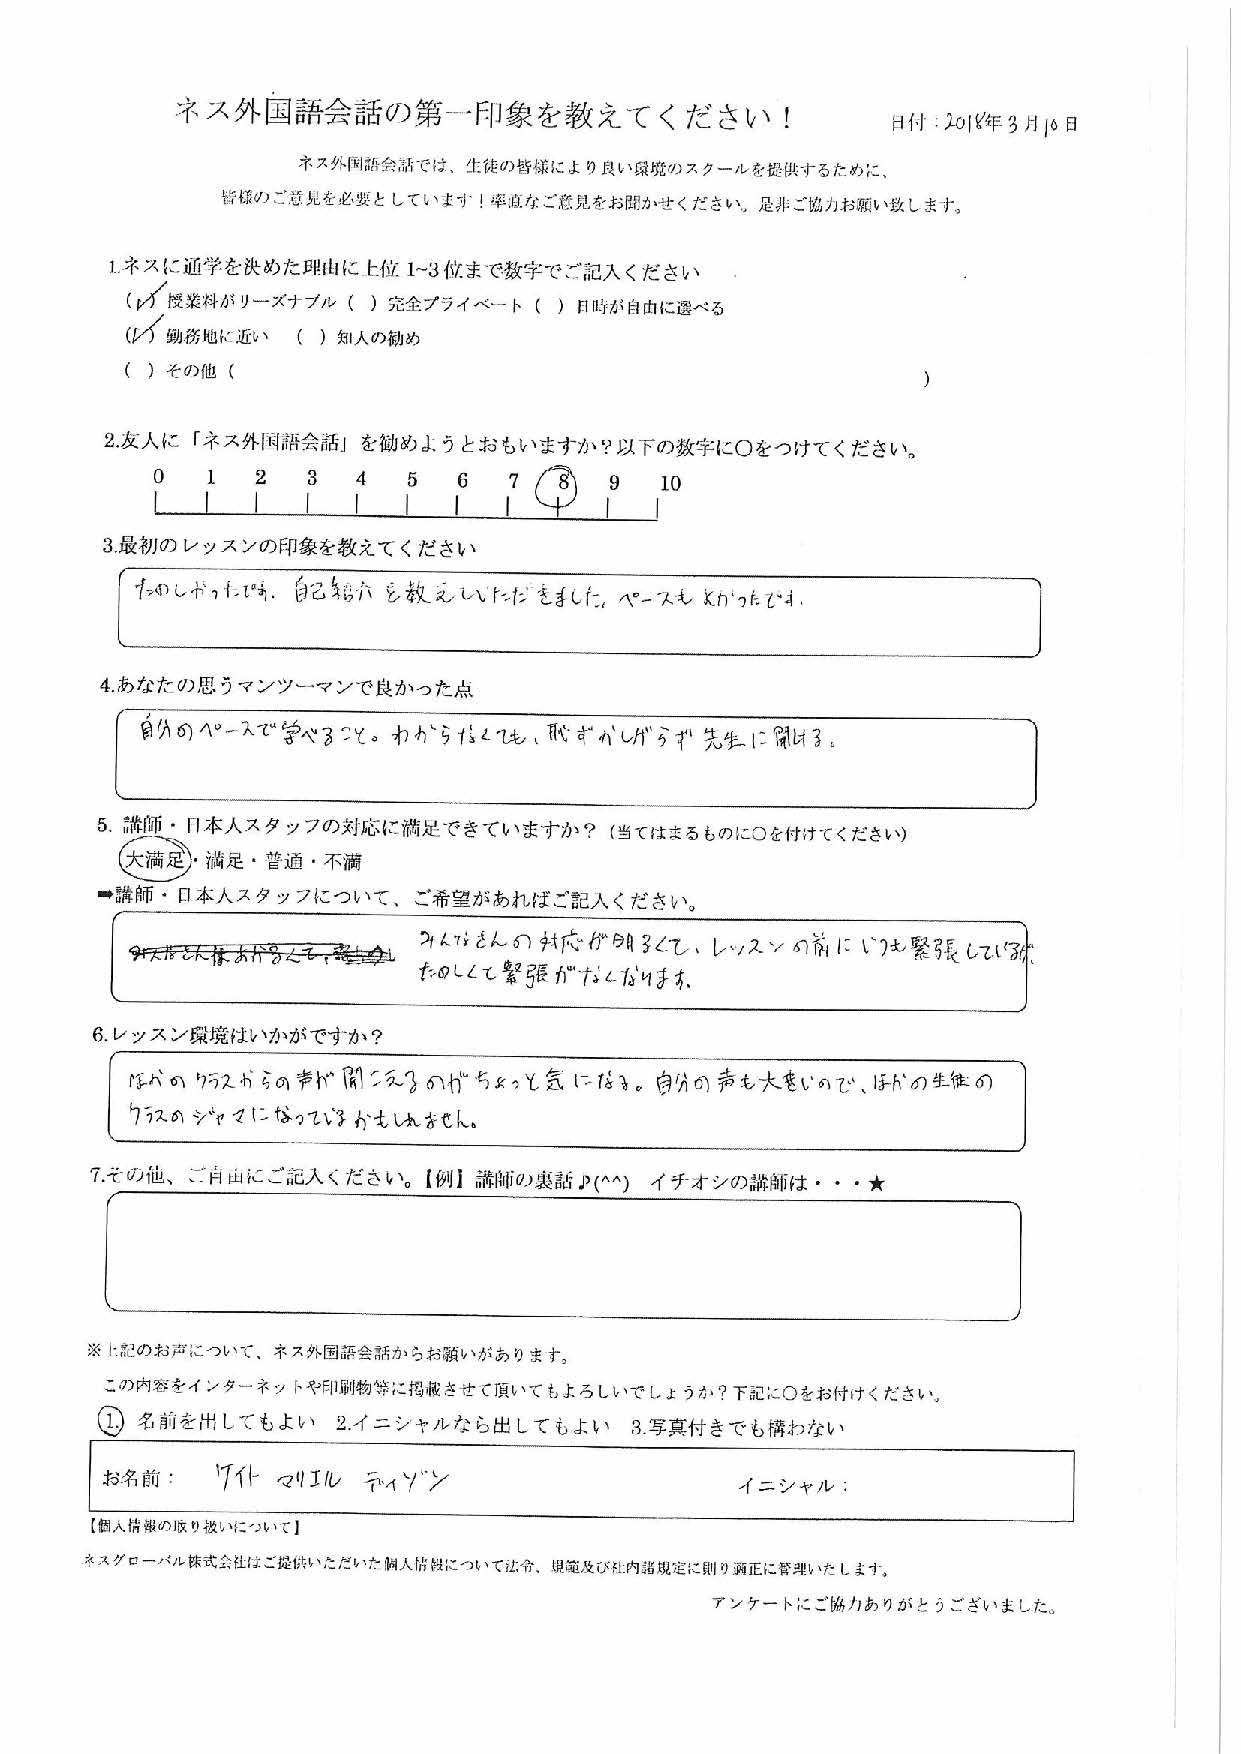 ネス外国語会話の第一印象を教えてください！
日付：2018年3月10日
ネス外国語会話では、生徒の皆様により良い環境のスクールを提供するために、
皆様のご意見を必要としています！率直なご意見をお聞かせください。是非ご協力お願い致します。
1.ネスに通学を決めた理由に上位1~3位まで数字でご記入ください
(✓) 授業料がリーズナブル ( ) 完全プライベート ( ) 日時が自由に選べる
(✓) 勤務地に近い ( ) 知人の勧め
( ) その他 ( )
2.友人に「ネス外国語会話」を勧めようとおもいますか？以下の数字に〇をつけてください。
0 1 2 3 4 5 6 7 8 9 10
3.最初のレッスンの印象を教えてください
たのしかったです。自己紹介を教えていただきました。ペースもよかったです。
4.あなたの思うマンツーマンで良かった点
自分のペースで学べること。わからなくても、恥ずかしがらず先生に聞ける。
5. 講師・日本人スタッフの対応に満足できていますか？（当てはまるものに〇を付けてください）
大満足・満足・普通・不満
➡講師・日本人スタッフについて、ご希望があればご記入ください。
みんなさんの対応が明るくて、レッスンの前にいつも緊張しているが、
たのしくて緊張がなくなります。
6.レッスン環境はいかがですか？
ほかのクラスからの声が聞こえるのがちょっと気になる。自分の声も大きいので、ほかの生徒の
クラスのジャマになっているかもしれません。
7.その他、ご自由にご記入ください。【例】講師の裏話♪(^^) イチオシの講師は・・・★
※上記のお声について、ネス外国語会話からお願いがあります。
この内容をインターネットや印刷物等に掲載させて頂いてもよろしいでしょうか？下記に〇をお付けください。
1. 名前を出してもよい 2.イニシャルなら出してもよい 3.写真付きでも構わない
お名前： ワイト マリエル ティゾン イニシャル：
【個人情報の取り扱いについて】
ネスグローバル株式会社はご提供いただいた個人情報について法令、規範及び社内諸規定に則り適正に管理いたします。
アンケートにご協力ありがとうございました。